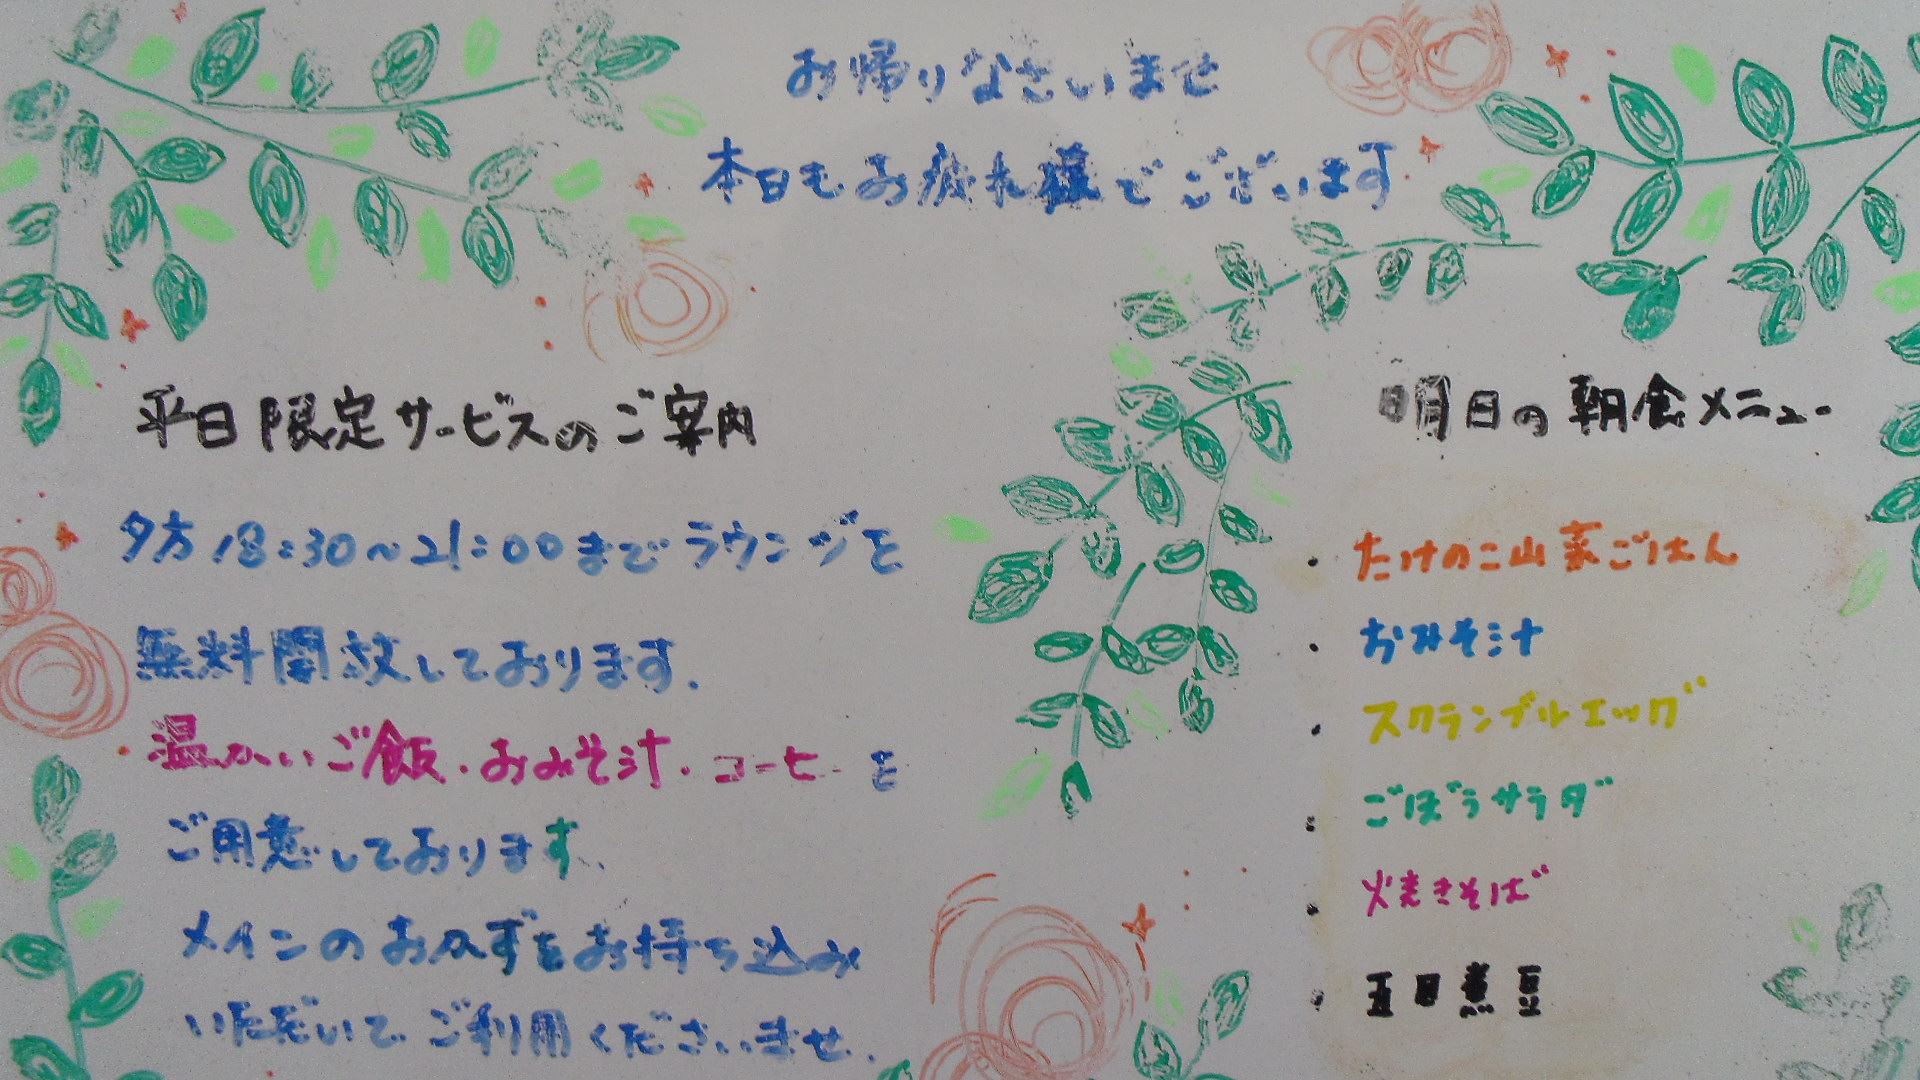 お帰りなさいませ
本日もお疲れ様でございます
平日限定サービスのご案内
夕方18:30〜21:00までラウンジを
無料開放しております.
温かいご飯・おみそ汁・コーヒーを
ご用意しております.
メインのおかずをお持ち込み
いただいて ご利用くださいませ.
明日の朝食メニュー
・たけのこ山菜ごはん
・おみそ汁
・スクランブルエッグ
・ごぼうサラダ
・焼きそば
・五目煮豆